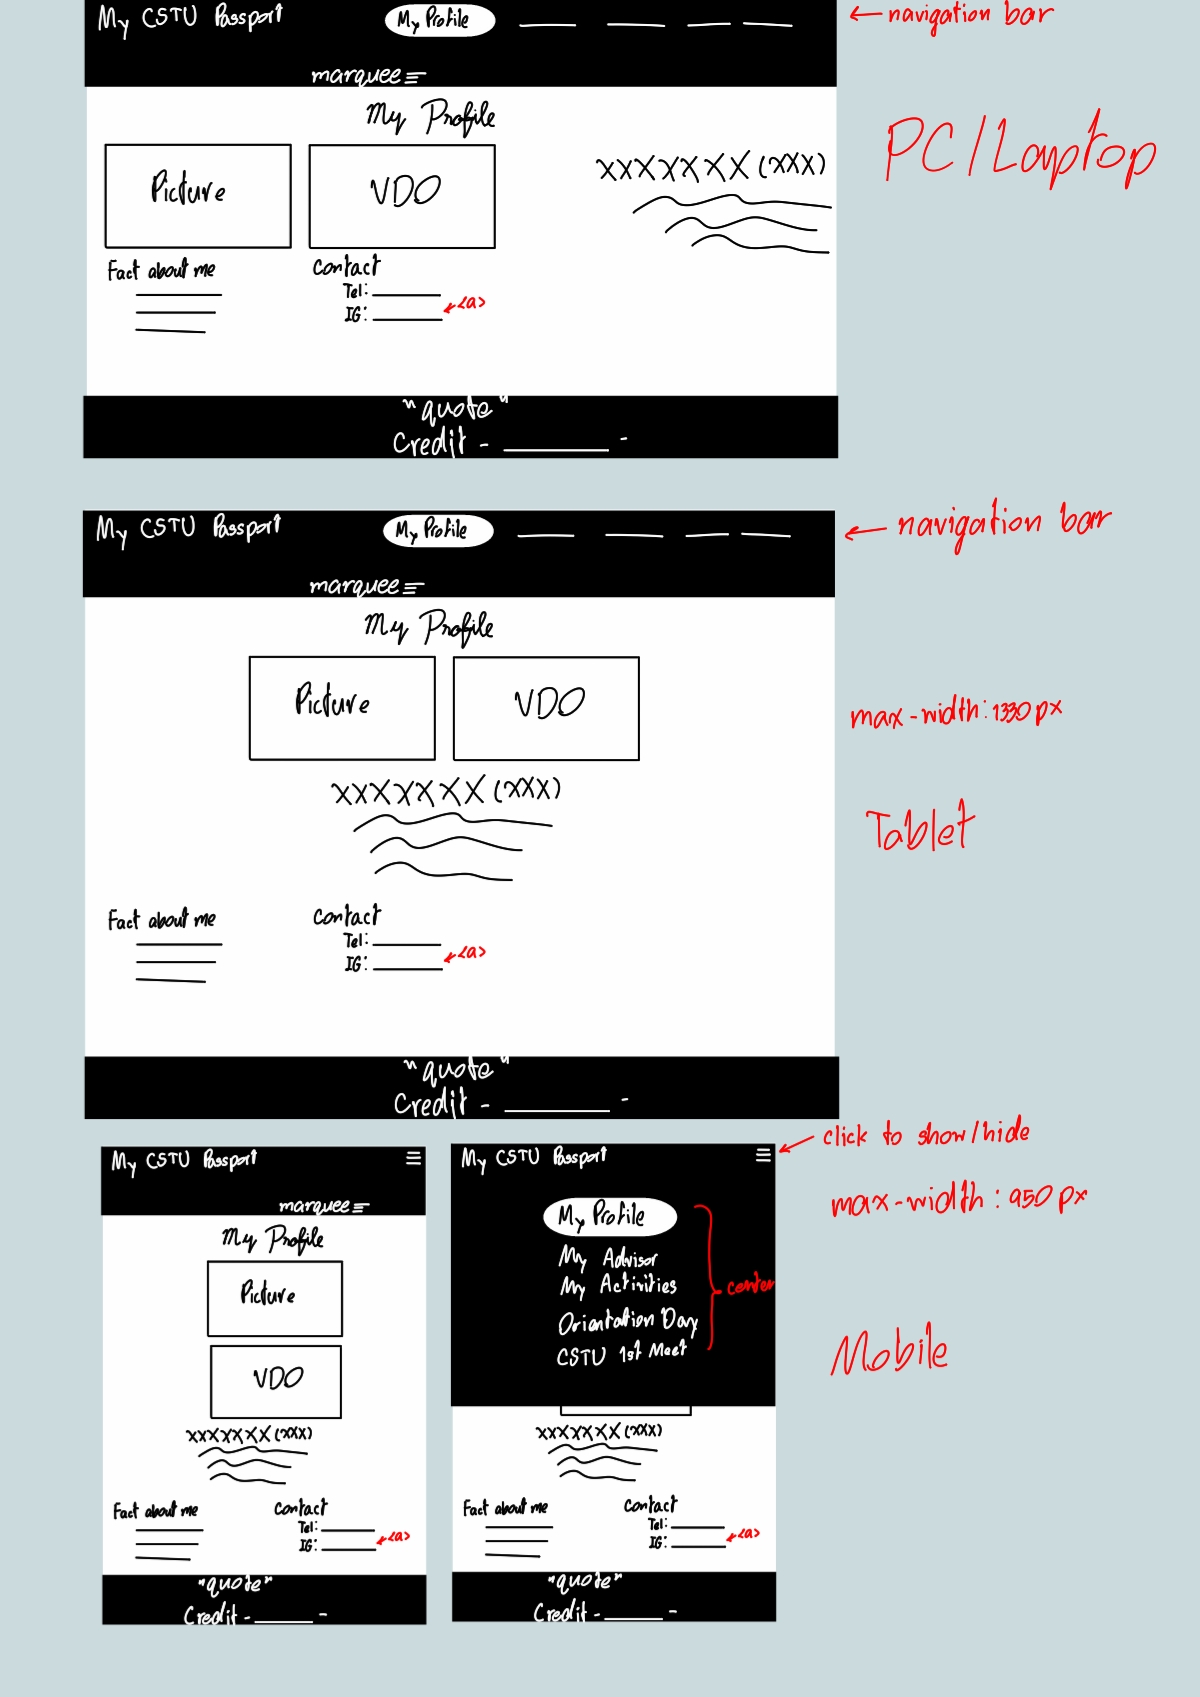 My CSTU Passport My Profile
← navigation bar
marquee
My Profile
PC/Laptop
Picture VDO
XXXXXXX (XXX)
Fact about me Contact
Tel:
IG: <a>
"quote"
Credit - -
My CSTU Passport My Profile
← navigation bar
marquee
My Profile
Picture VDO
max-width: 1330px
XXXXXXX (XXX)
Tablet
Fact about me Contact
Tel:
IG: <a>
"quote"
Credit - -
click to show/hide
My CSTU Passport
marquee
My Profile
Picture
VDO
XXXXXXX (XXX)
Fact about me Contact
Tel:
IG: <a>
"quote"
Credit - -
My CSTU Passport
My Profile
My Advisor
My Activities
center
Orientation Day
CSTU 1st Meet
XXXXXXX (XXX)
Fact about me Contact
Tel:
IG: <a>
"quote"
Credit - -
max-width: 950px
Mobile